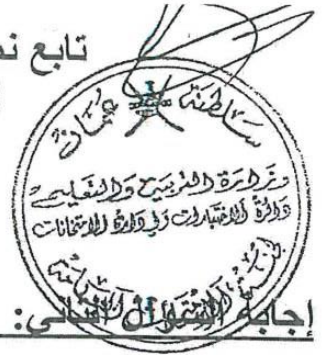 تابع
سلطنة عمان
وزارة التربية والتعليم
دائرة الاختبارات وإدارة الامتحانات
إجابة السؤال الثاني: